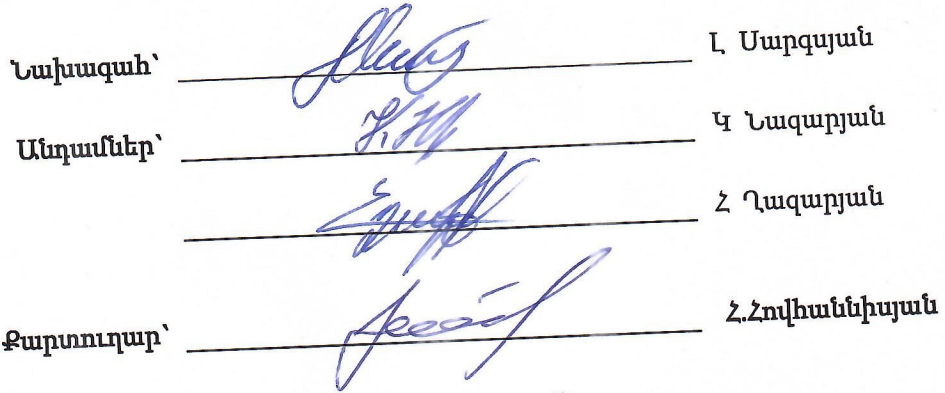 Նախագահ՝ Լ Սարգսյան
Անդամներ՝ Կ Նազարյան
Հ Ղազարյան
Քարտուղար՝ Հ.Հովհաննիսյան